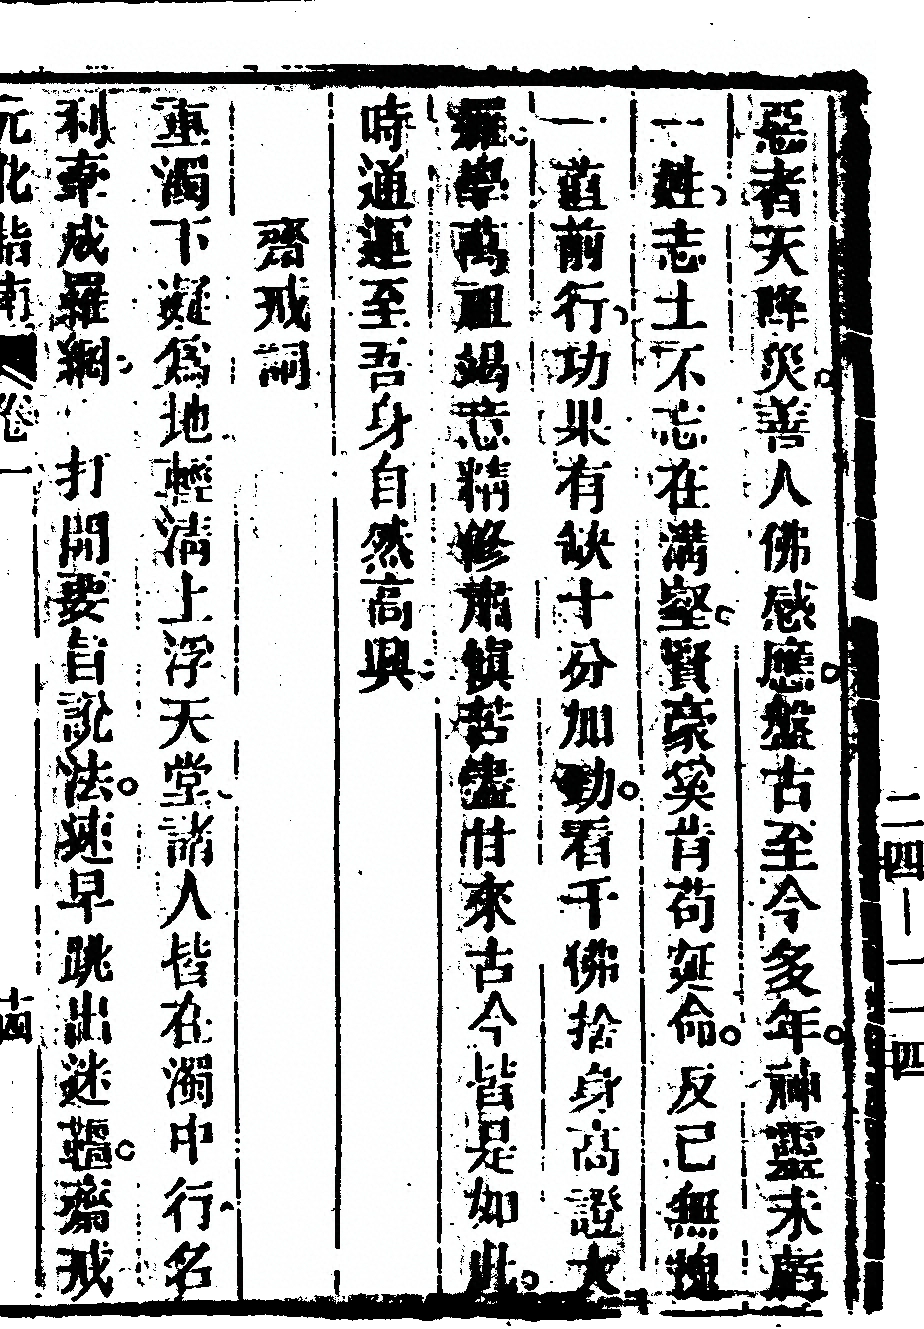 惡者天降災善人佛感應盤古至今多年神靈未虧
一姓志士不忘在溝壑賢豪奚肯苟延命反己無愧
一直前行功果有缺十分加勁看千佛捨身高證大
羅學萬祖竭意精修肅慎苦盡甘來古今皆是如此
時通運至吾身自然高興
齋戒詞
重濁下凝為地輕清上浮天堂諸人皆在濁中行名
利牽成羅網 打開要旨說法速早跳出迷韁齋戒
元化指南 卷一 十四
二四—一一四